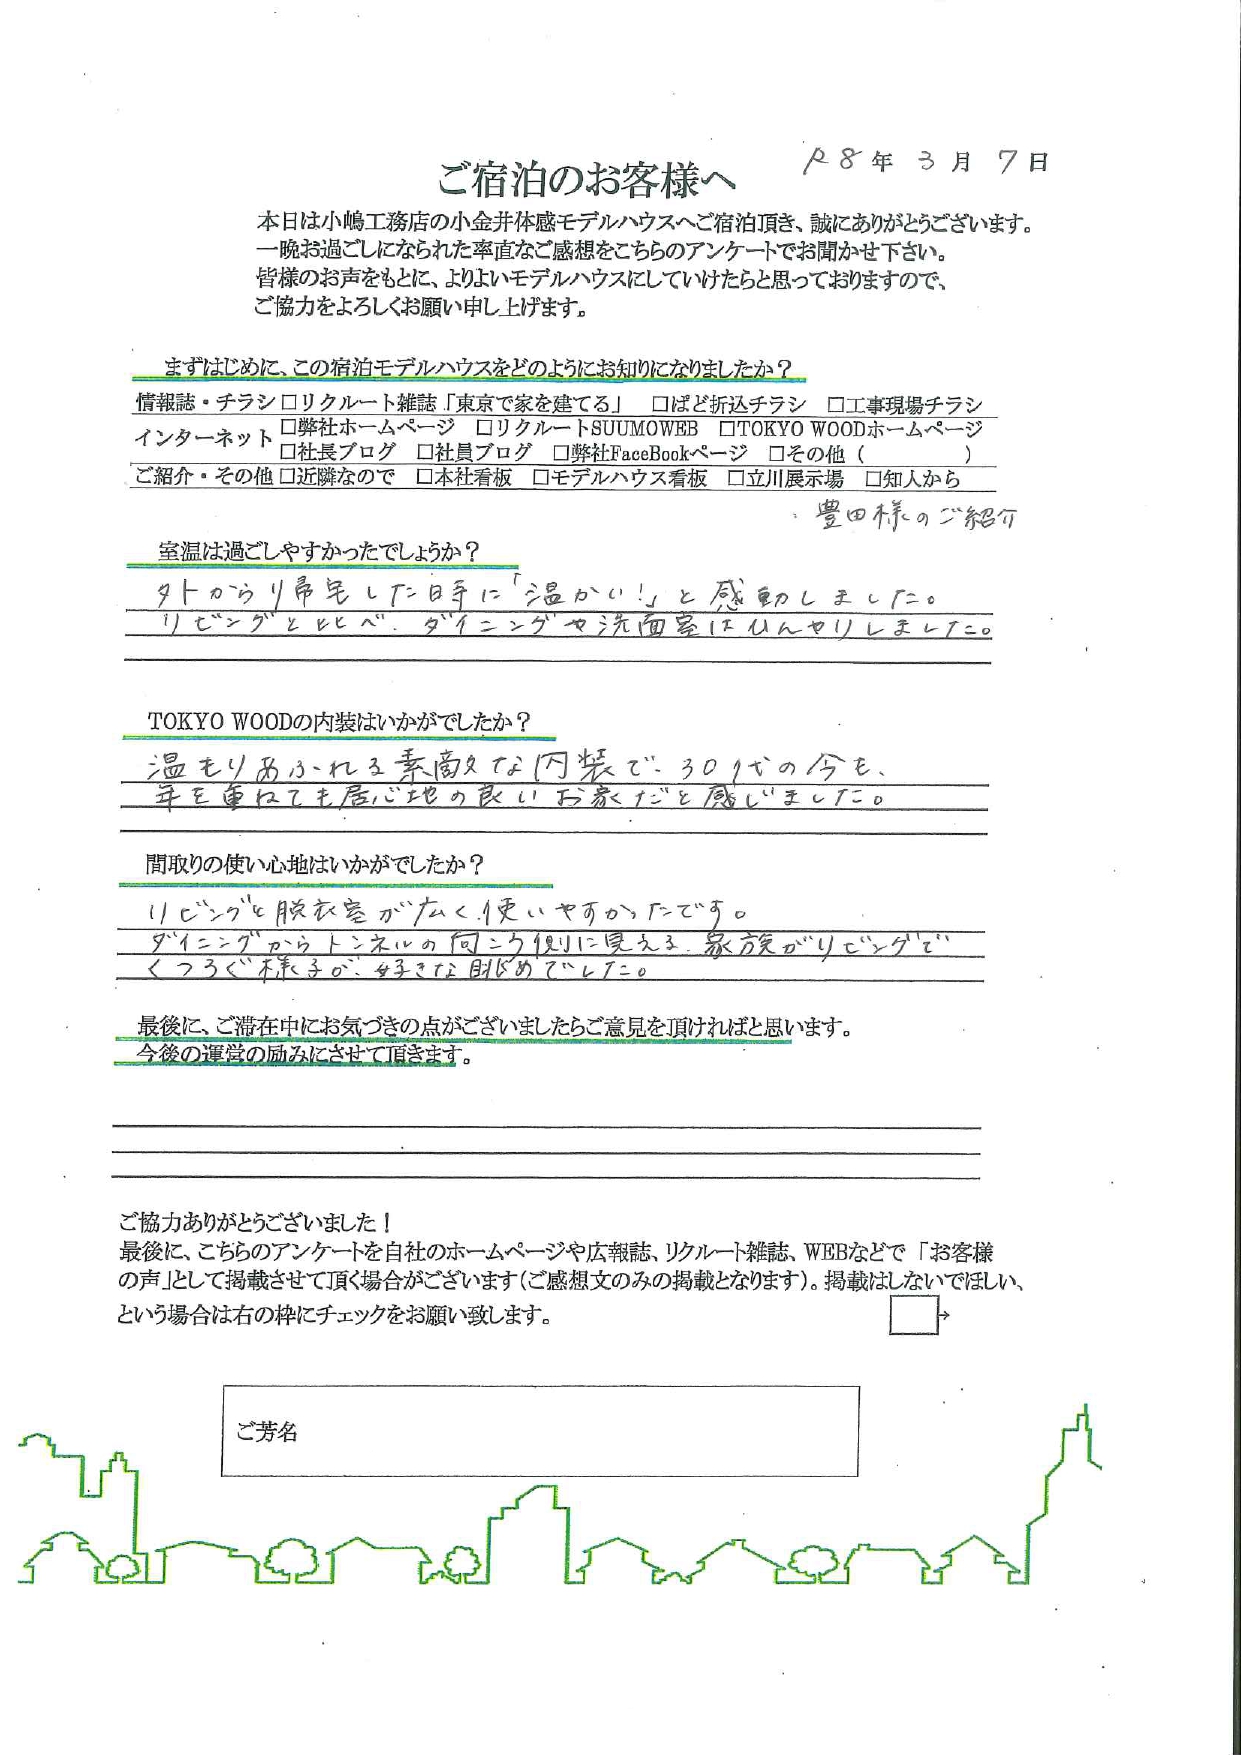 R8年 3月 7日
ご宿泊のお客様へ
本日は小嶋工務店の小金井体感モデルハウスへご宿泊頂き、誠にありがとうございます。
一晩お過ごしになられた率直なご感想をこちらのアンケートでお聞かせ下さい。
皆様のお声をもとに、よりよいモデルハウスにしていけたらと思っておりますので、
ご協力をよろしくお願い申し上げます。
まずはじめに、この宿泊モデルハウスをどのようにお知りになりましたか？
情報誌・チラシ □リクルート雑誌「東京で家を建てる」 □ぱど折込チラシ □工事現場チラシ
インターネット □弊社ホームページ □リクルートSUUMOWEB □TOKYO WOODホームページ
□社長ブログ □社員ブログ □弊社FaceBookページ □その他（ ）
ご紹介・その他 □近隣なので □本社看板 □モデルハウス看板 □立川展示場 □知人から
豊田様のご紹介
室温は過ごしやすかったでしょうか？
外からり帰宅した時に「温かい！」と感動しました。
リビングと比べ、ダイニングや洗面室はひんやりしました。
TOKYO WOODの内装はいかがでしたか？
温もりあふれる素敵な内装で、30代の今も、
年を重ねても居心地の良いお家だと感じました。
間取りの使い心地はいかがでしたか？
リビングと脱衣室が広く使いやすかったです。
ダイニングからトンネルの向こう側に見える、家族がリビングで
くつろぐ様子が、好きな眺めでした。
最後に、ご滞在中にお気づきの点がございましたらご意見を頂ければと思います。
今後の運営の励みにさせて頂きます。
ご協力ありがとうございました！
最後に、こちらのアンケートを自社のホームページや広報誌、リクルート雑誌、WEBなどで「お客様
の声」として掲載させて頂く場合がございます（ご感想文のみの掲載となります）。掲載はしないでほしい、
という場合は右の枠にチェックをお願い致します。
ご芳名